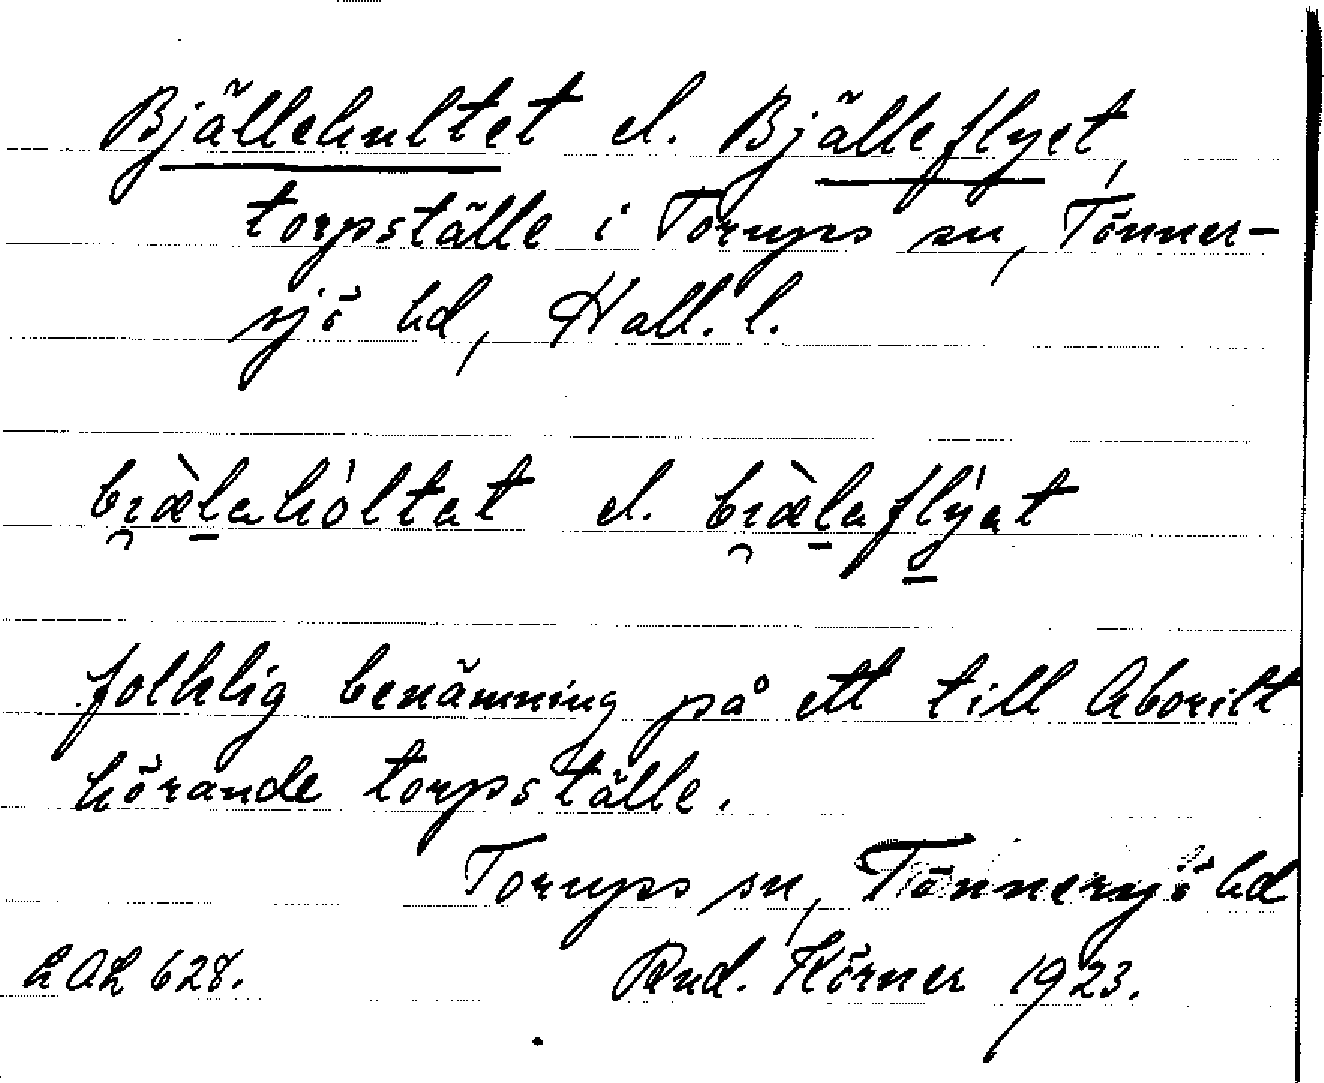 Bjällehultet el. Bjälleflyet,
torpställe i Torups sn, Tönner-
sjö hd, Hall. l.
bi̯æ̀lahóltat el. bi̯æ̀laflýat
folklig benämning på ett till Aborilt
hörande torpställe.
Torups sn, Tönnersjö hd
LAL 628. Rud. Körner 1923.